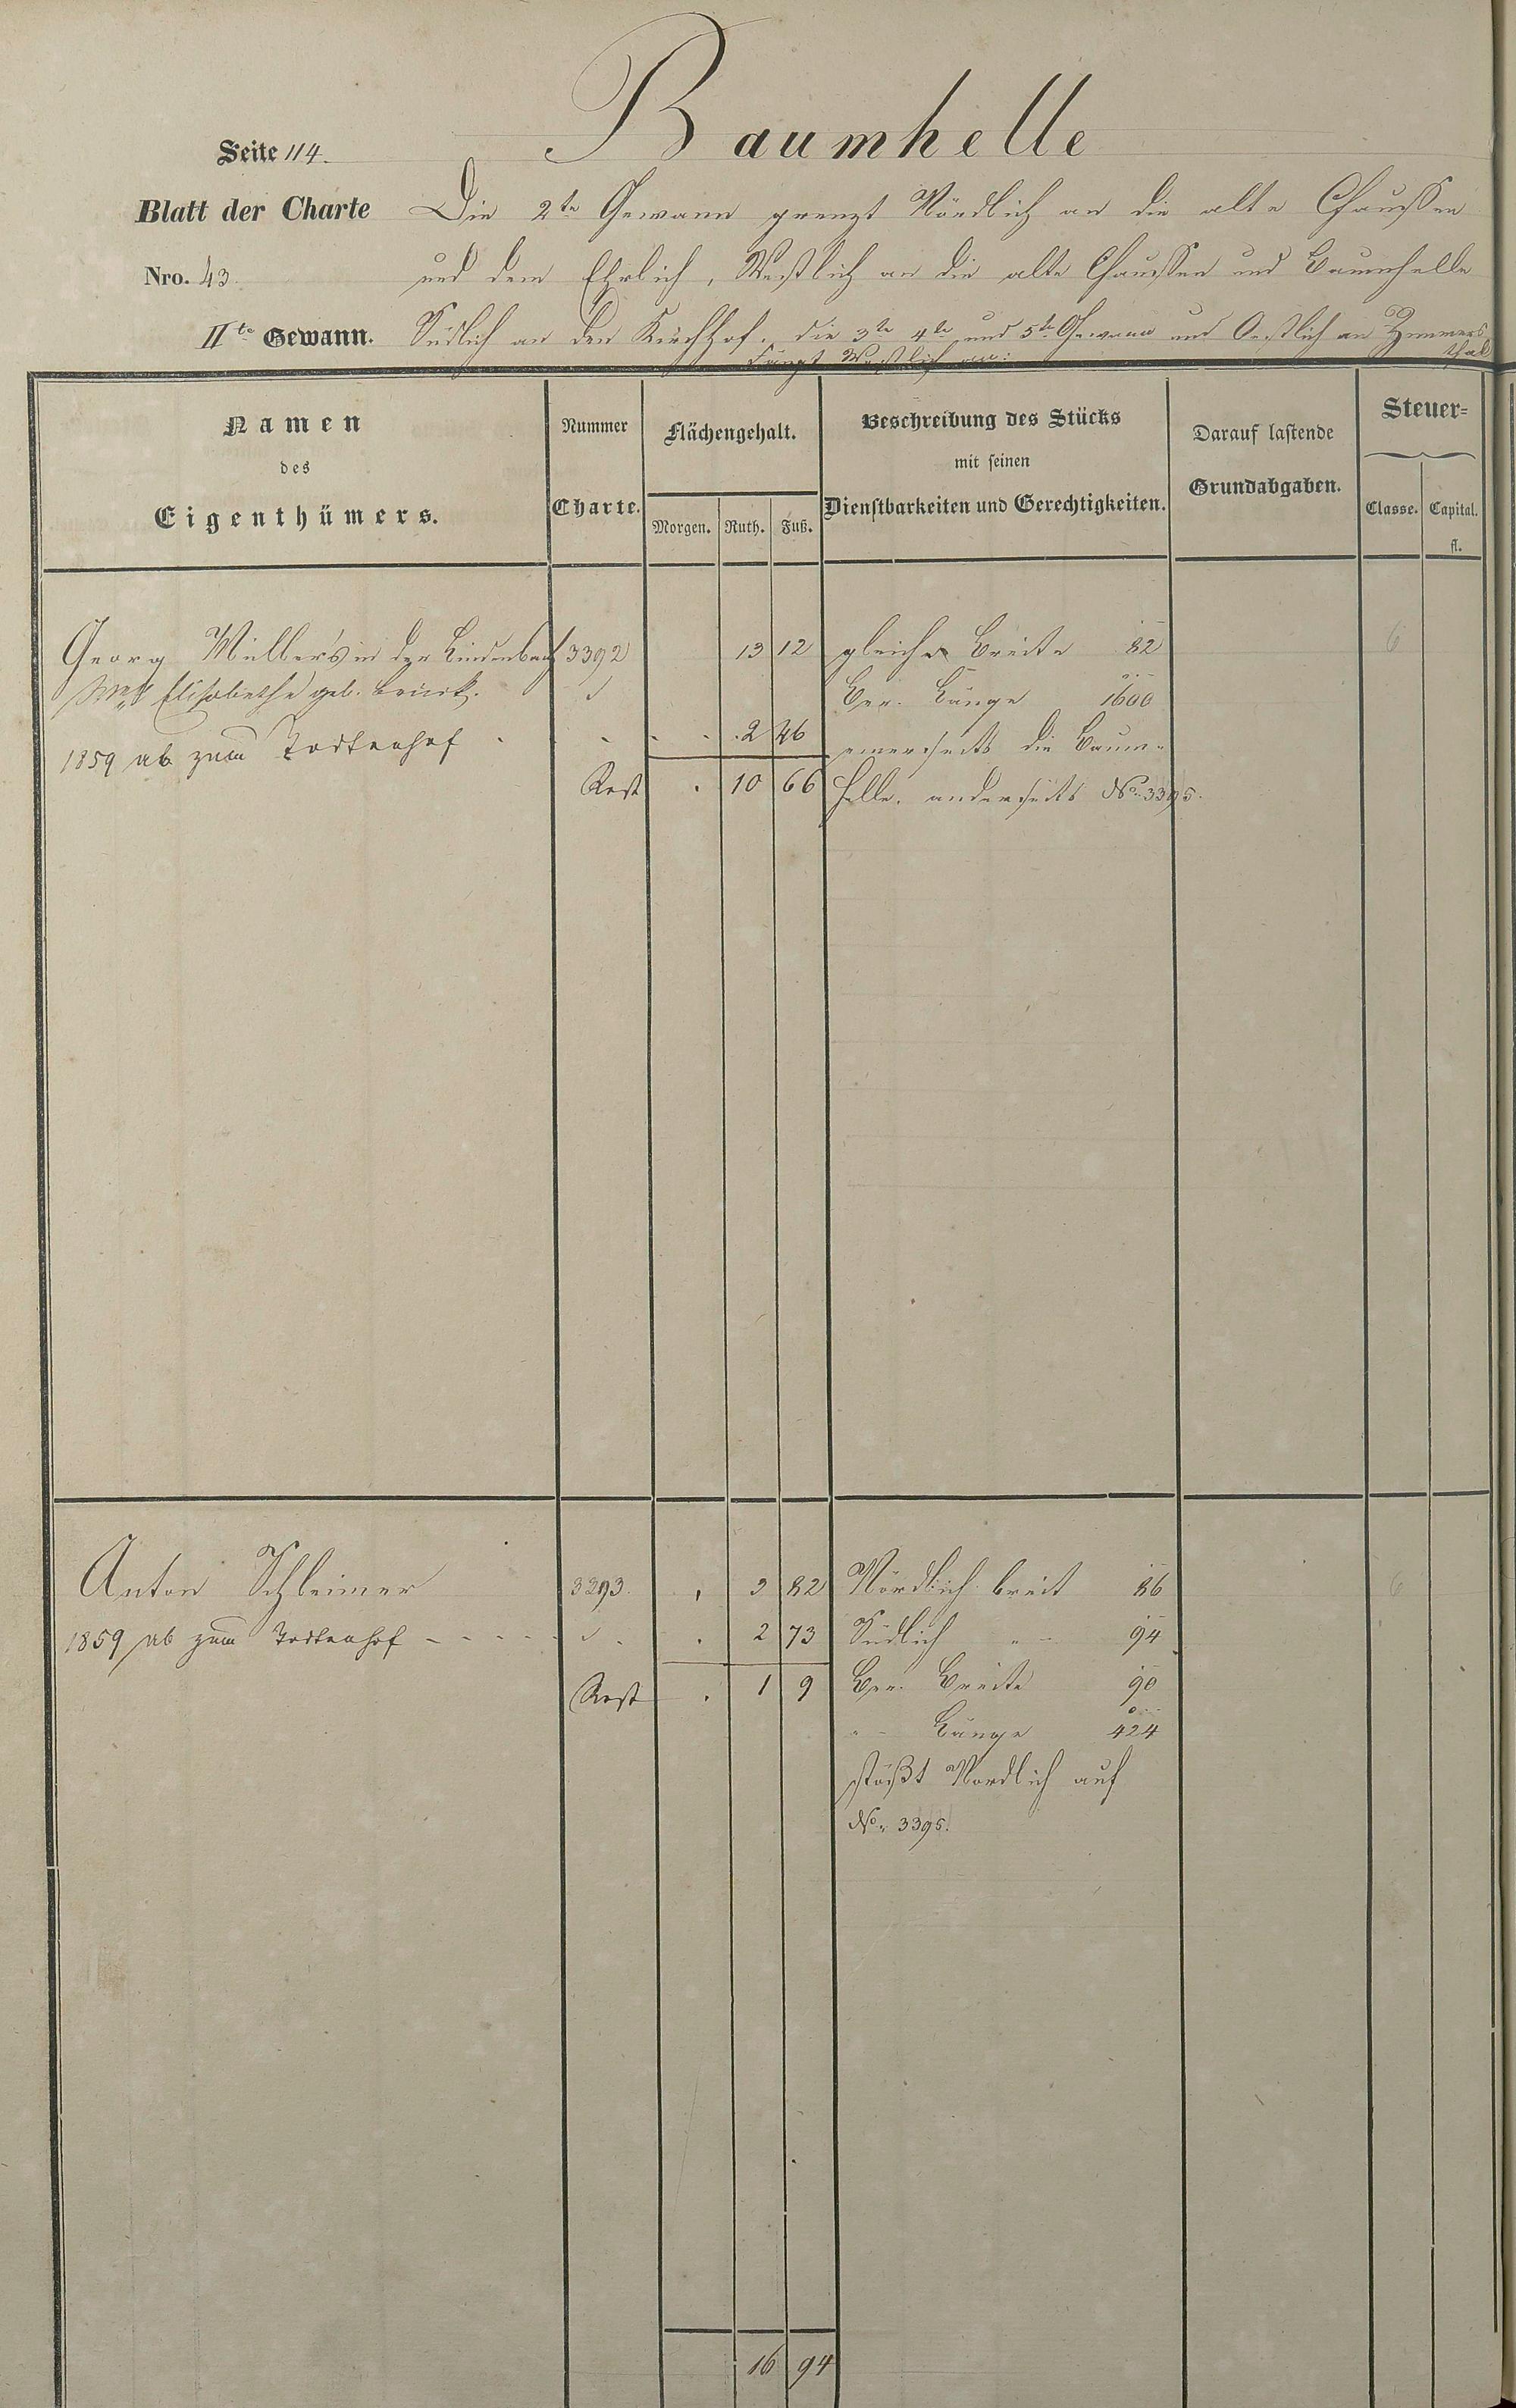 Baumhelle
Seite 114.
Blatt der Charte Die 2te Gewann grenzt Nördlich an die alte Chaussee
Nro. 43. und dem Ehrlich, Westlich an die alte Chaussee und Baumhelle
IIte Gewann. Südlich an den Kirchhof, die 3te 4te und 5te Gewann und Oestlich an Zimmers
thal
Fängt Westlich an:
Namen des Eigenthümers.
Nummer Charte.
Flächengehalt.
Morgen. Ruth. Fuß.
Beschreibung des Stücks
mit seinen
Dienstbarkeiten und Gerechtigkeiten.
Darauf lastende
Grundabgaben.
Steuer=
Classe. Capital.
fl.
Georg Müller's in der Lindenbach 3392 13 12 gleiche Breite 82 6
Elisabetha geb. Brück. Ber. Länge 1600
1859 ab zum Todtenhof 2 46 einerseits die Baum-
Rest 10 66 helle, anderseits No. 3395.
Anton Schleimer 3293. 3 82 Nördlich breit 86 6
1859 ab zum Todtenhof 2 73 Südlich " 94
Rest 1 9 Ber. Breite 90
" Länge 424
stößt Nordlich auf
No. 3395.
16 94